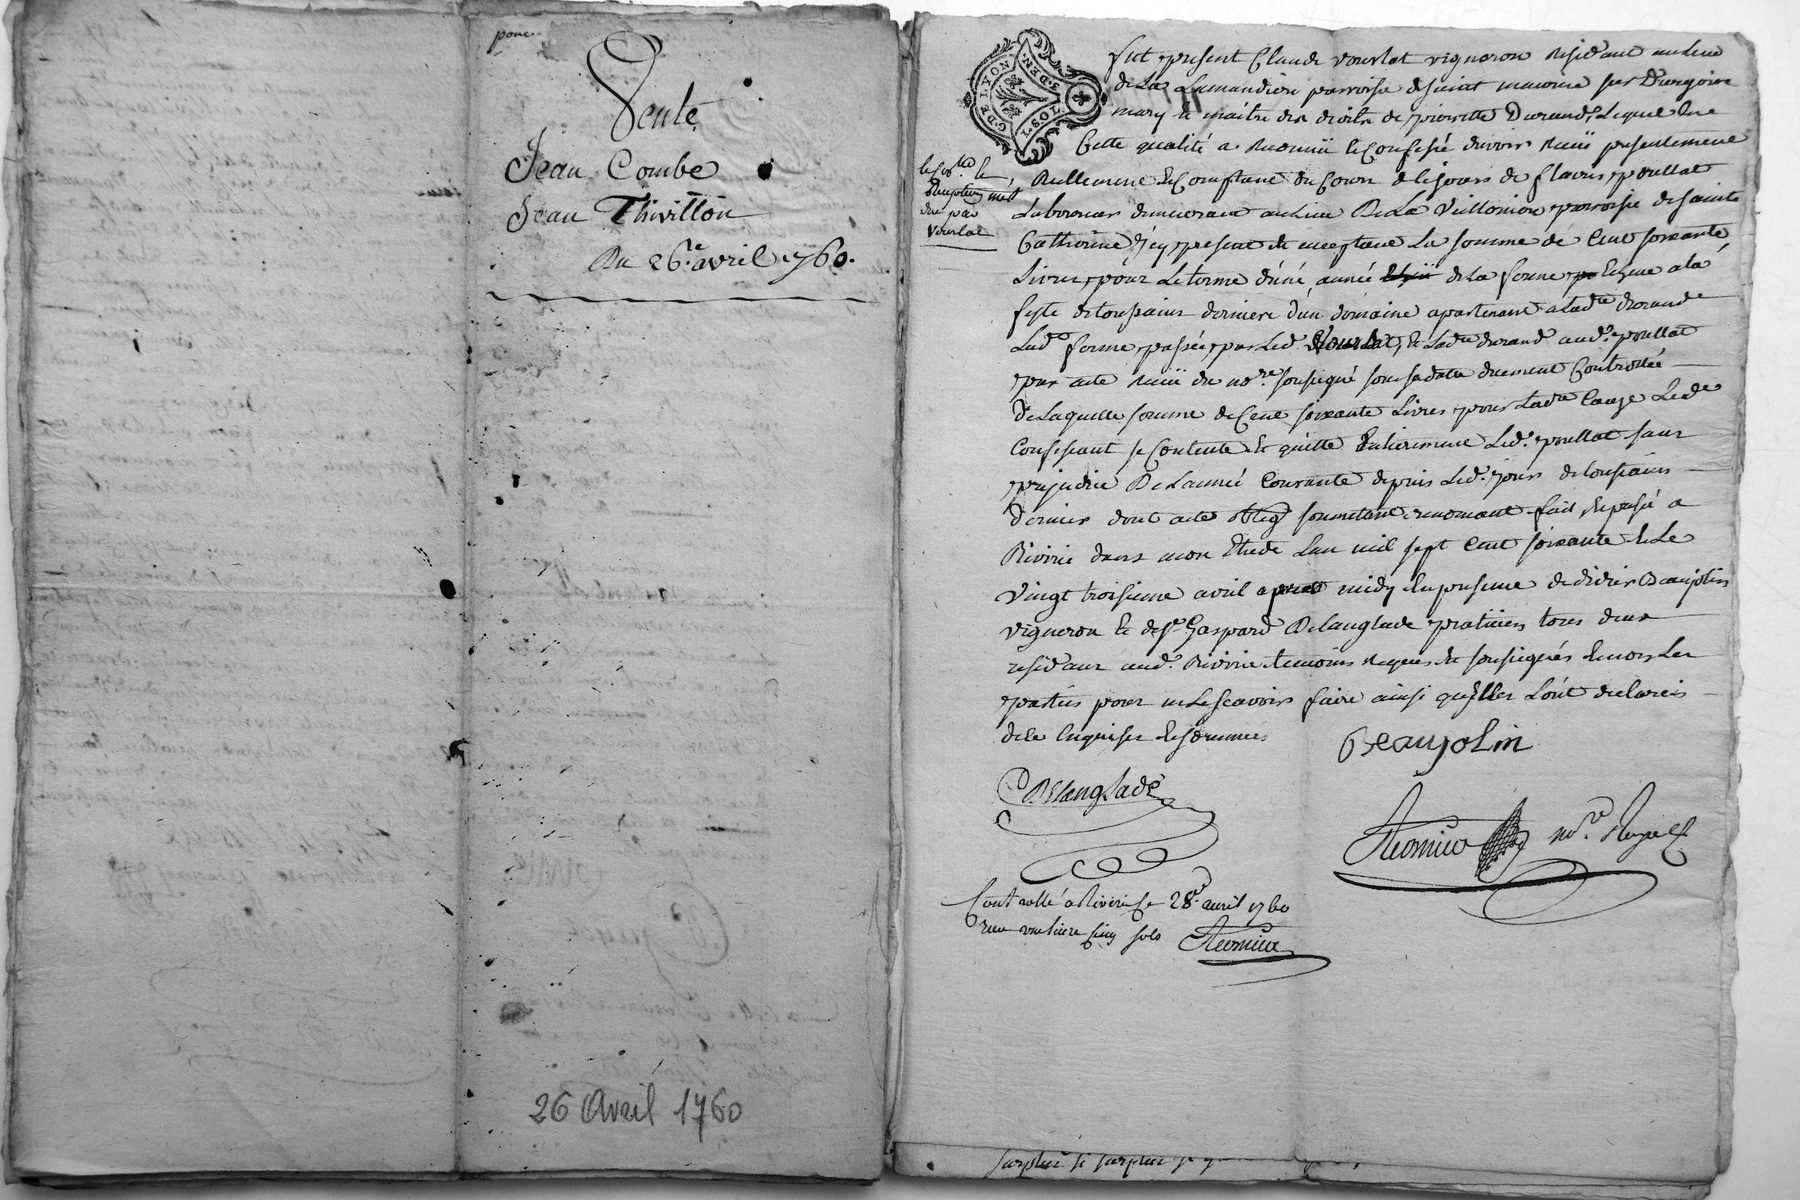 ponc
Vente
Jean Combe
Jean Thivillon
Du 26.e avril 1760.
26 Avril 1760
G. DE LYON
2 SOLS. 8 DEN.
fut present Claude vourlat vigneron residant au lieu
de La Lamandiere parroisse de saint maurice sur Dargoire
mary et maitre des droits de pierrette Durand, Lequel en
Cette qualité a Receu et Confessé avoir Receu presentement
Reellement et Comptant du Cours de ce jour de fleury poullat
Laboureur demeurant au Lieu De La parroisse de sainte
Catherine icy present et acceptant La somme de Cent soixante
Livres pour Le terme d'une année de La ferme Echeue a la
feste de toussaint derniere d'un domaine apartenant a Lad.te durand
Lad.e ferme passée par Led. vourlat, et Lad.te durand aud. poullat
par acte receu du no.re soussigné sous sa datte duement Controllé
De Laquelle somme de Cent soixante Livres pour Lad.te Cauze Led.
Confessant se Contente et quitte Entierement Led. poullat sans
prejudice De L'année Courante depuis Led. jour de toussaint
dernier dont acte oblig soumetant renoncant fait et passé a
Riverie dans mon Etude L'an mil sept Cent soixante et Le
vingt troisieme avril apres midy En presence de didier Beaujolin
vigneron et de s.r Gaspard Delanglade praticien tous deux
residant aud. Riverie temoins requis et soussignés et non Les
parties pour ne Le scavoir faire ainsi qu'Elles L'ont declaré
de ce Enquises et sommées
le
Beaujolin
par
vourlat
Beaujolin
Delanglade
no.re Royal
Controllé a Riverie Le 28.e avril 1760
recu cinq sols
surplus si surplus